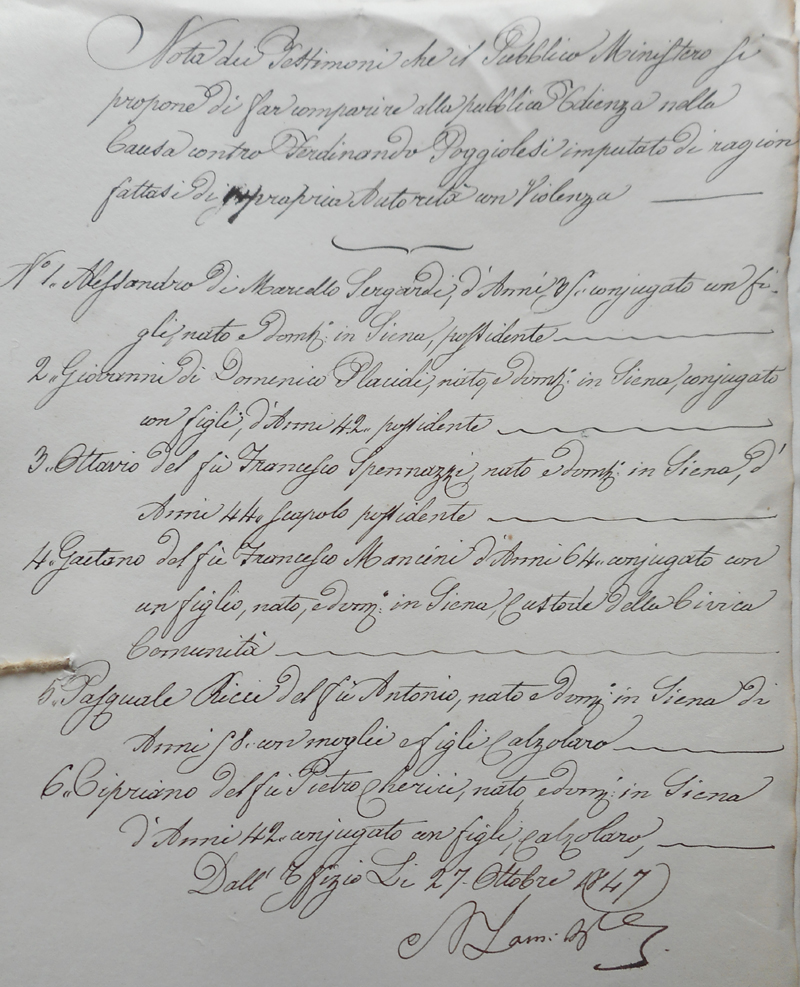 Nota dei Testimoni che il Pubblico Ministero si
propone di far comparire alla pubblica Udienza nella
Causa contro Ferdinando Poggiolesi imputato di ragion
fattasi di propria Autorità con Violenza
N° 1. Alessandro di Marcello Sergardi, d'Anni 35. conjugato con fi-
gli, nato e dom: in Siena, possidente
2. Giovanni di Domenico Placidi, nato, e dom: in Siena, conjugato
con figli, d'Anni 42. possidente
3. Ottavio del fù Francesco Spennazzi, nato e dom: in Siena, d'
Anni 44. scapolo possidente
4. Gaetano del fù Francesco Mancini d'Anni 64. conjugato con
un figlio, nato, e dom: in Siena, Custode della Civica
Comunità
5. Pasquale Ricci del fù Antonio, nato e dom: in Siena di
Anni 58. con moglie e figli Calzolaro
6. Cipriano del fù Pietro Cherici, nato, e dom: in Siena
d'Anni 42. conjugato con figli, Calzolaro,
Dall' Uffizio Li 27. Ottobre 1847